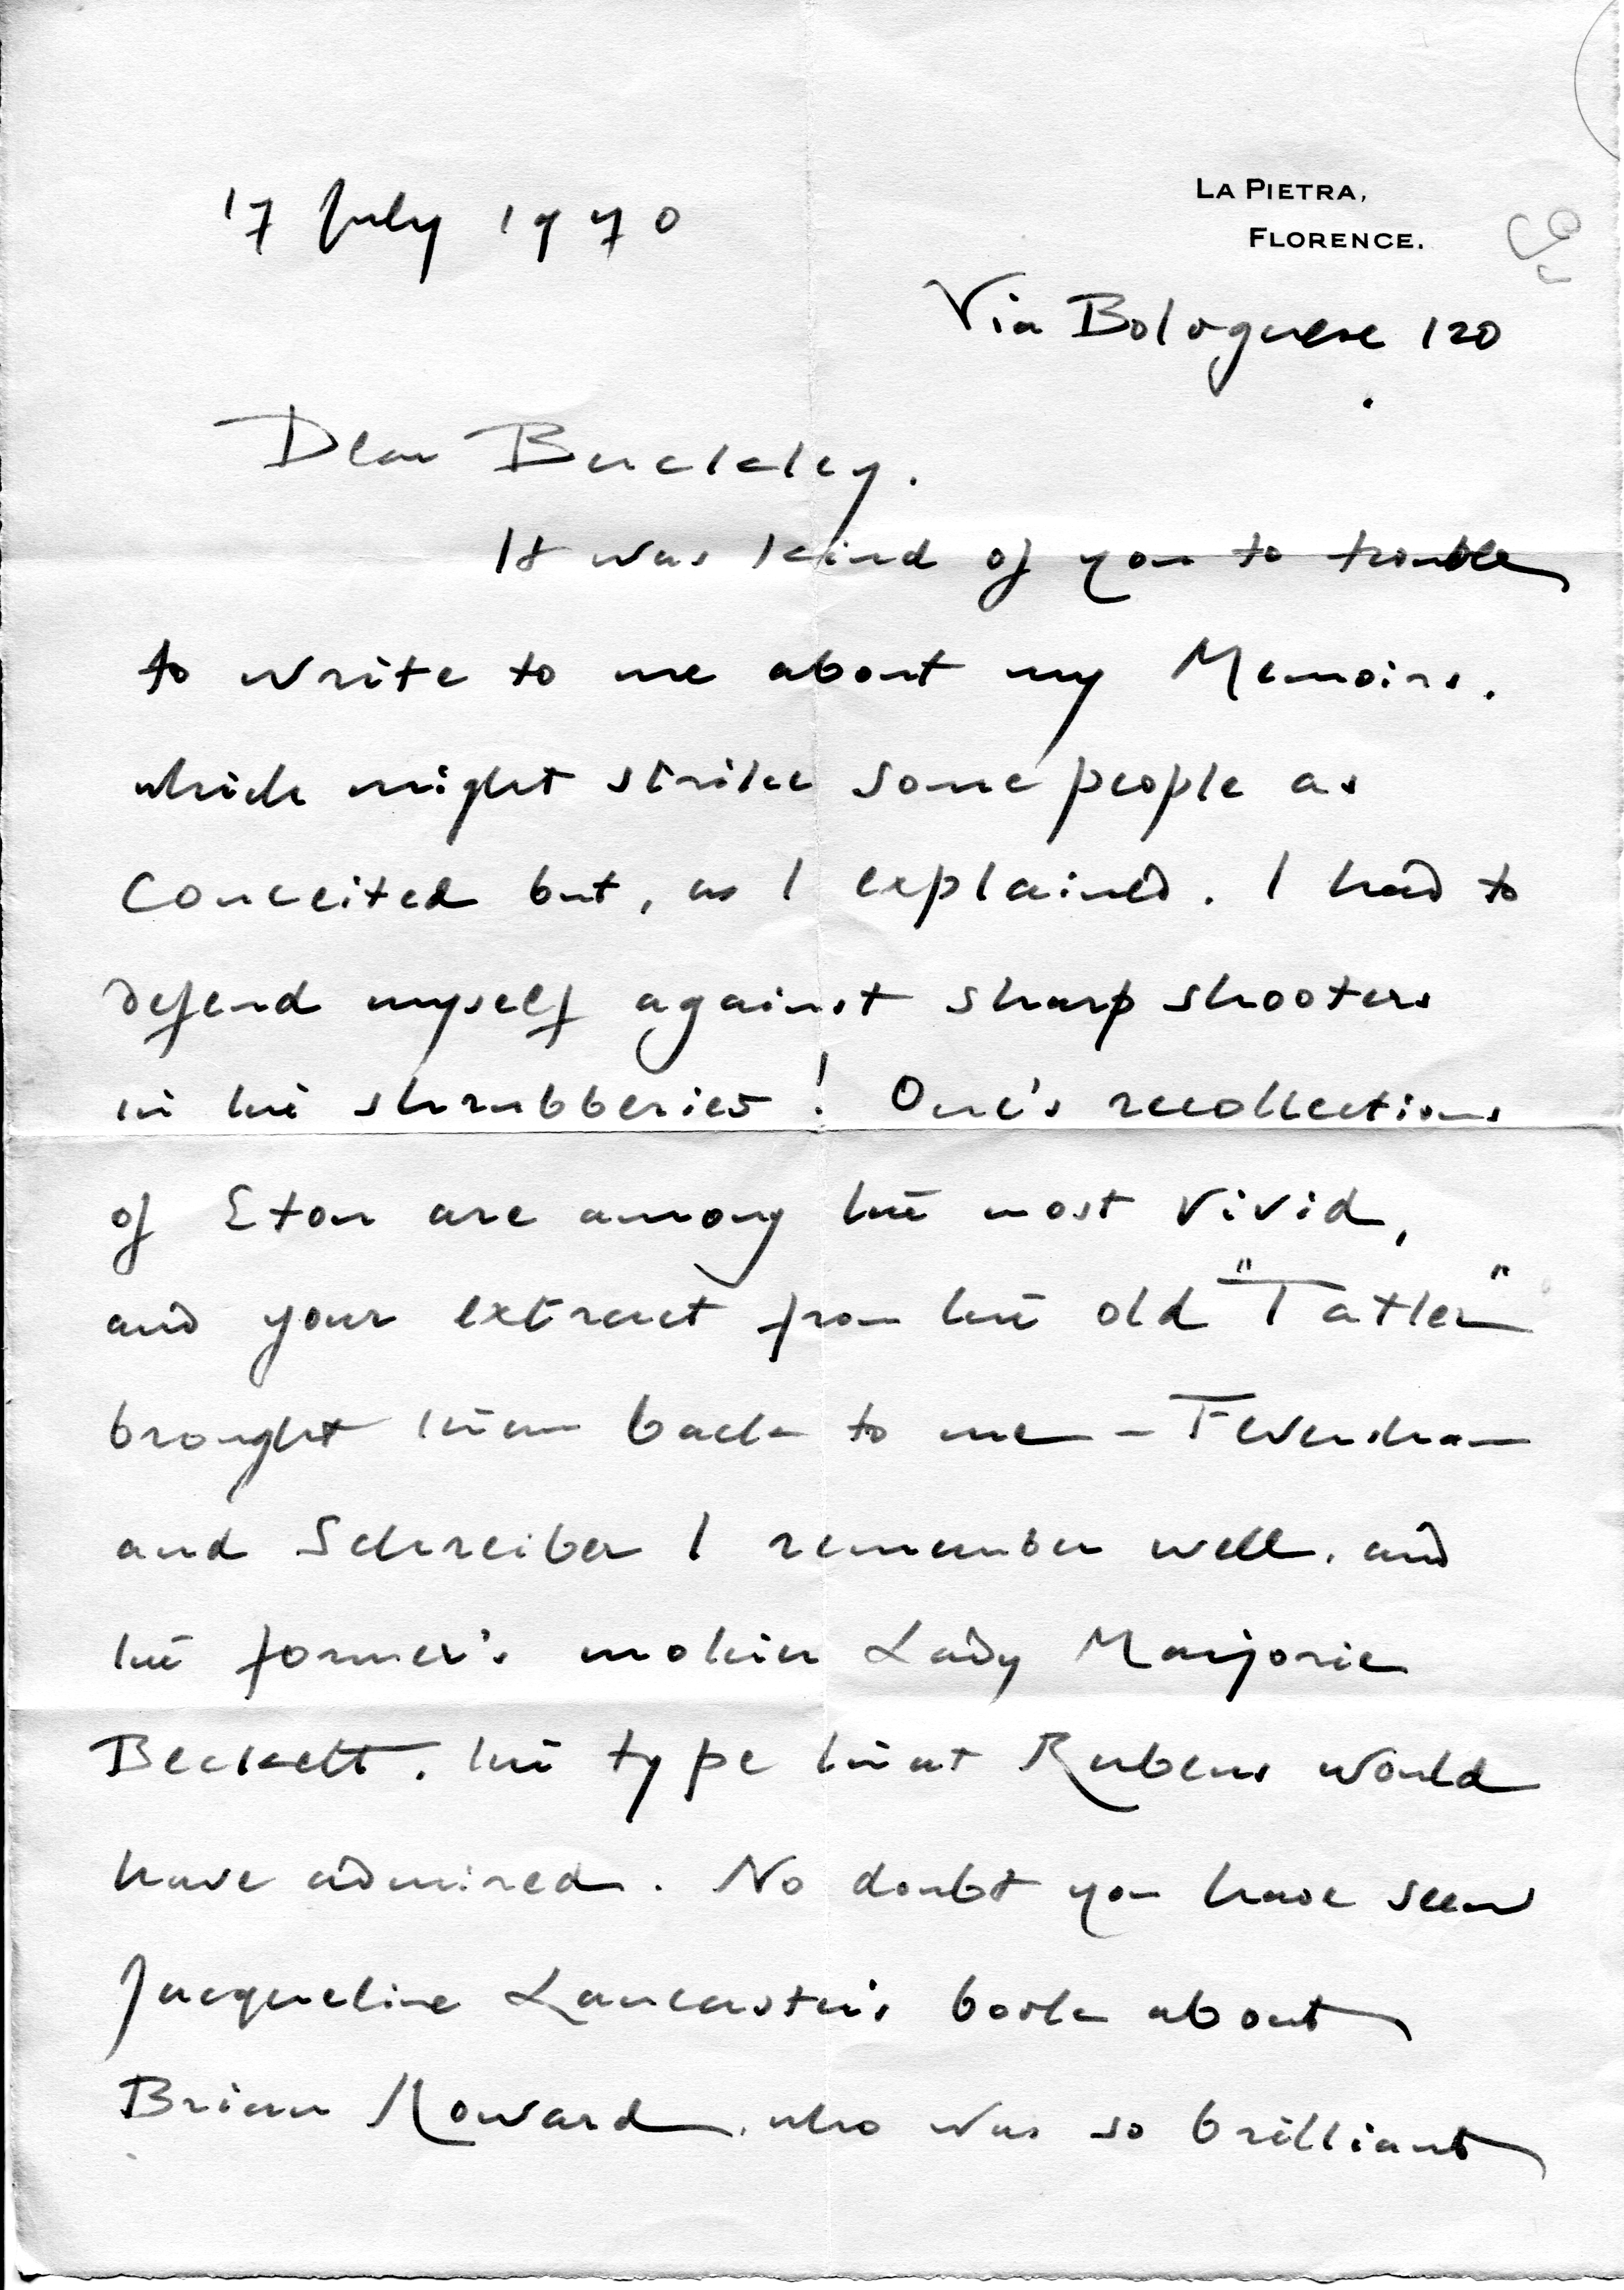 17 July 1970
LA PIETRA,
FLORENCE.
Via Bolognese 120
Dear Buckley.
It was kind of you to trouble
to write to me about my Memoirs.
which might strike some people as
conceited but, as I explained. I had to
defend myself against sharp shooters
in the shrubberies! One's recollections
of Eton are among the most vivid,
and your extract from the old "Tatler"
brought them back to me - Feversham
and Schreiber I remember well. and
the former's mother Lady Marjorie
Beckett. the type that Rubens would
have admired. No doubt you have seen
Jacqueline Lancaster's book about
Brian Howard, who was so brilliant